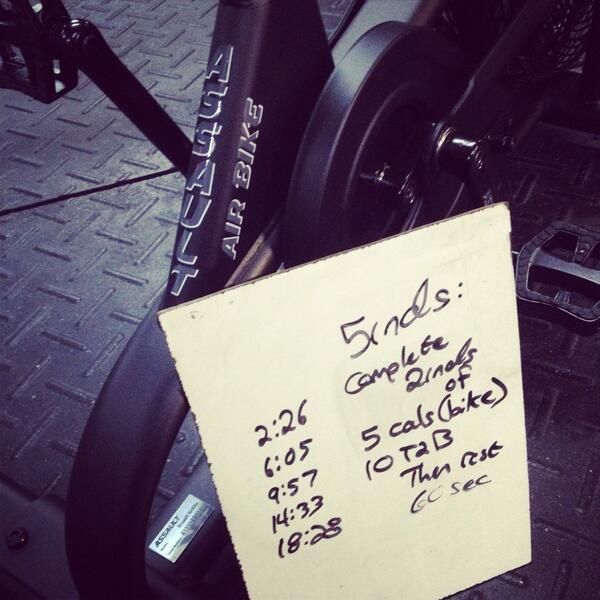 ASSAULT
AIR BIKE
5 rnds:
Complete
2 rnds
of
5 cals (bike)
10 T2B
Then rest
60 sec
2:26
6:05
9:57
14:33
18:28
ASSAULT